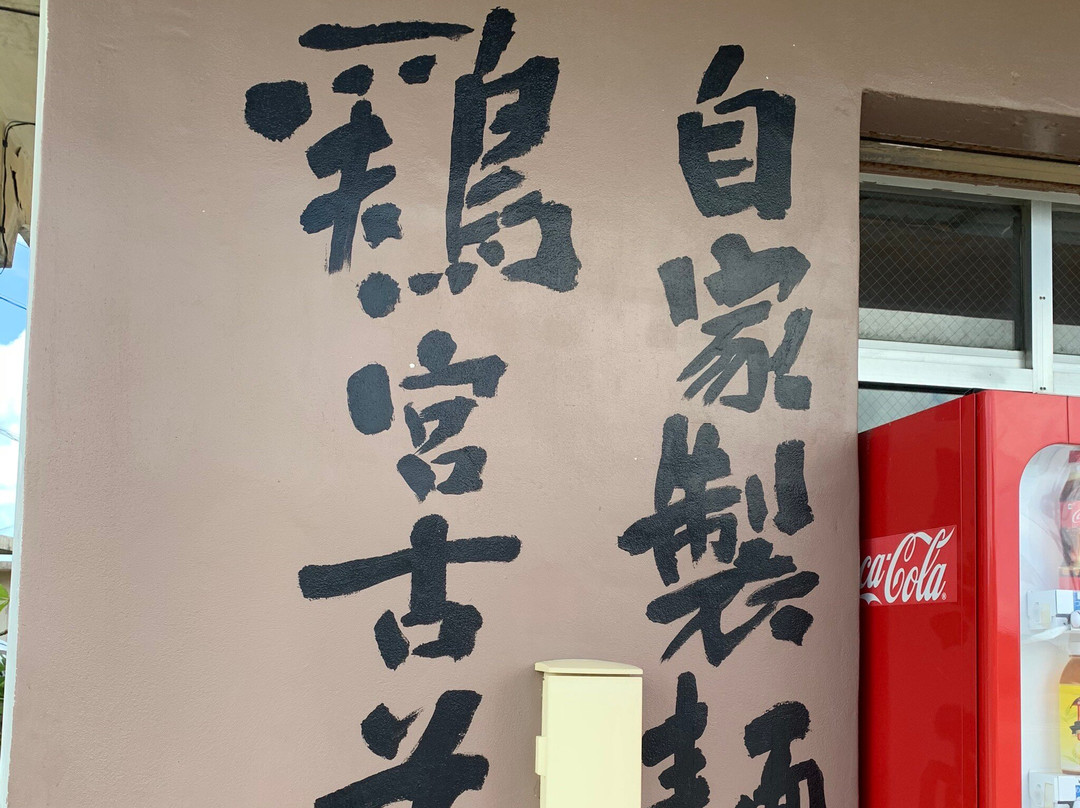 自家製麺
鶏宮古そ
Coca-Cola